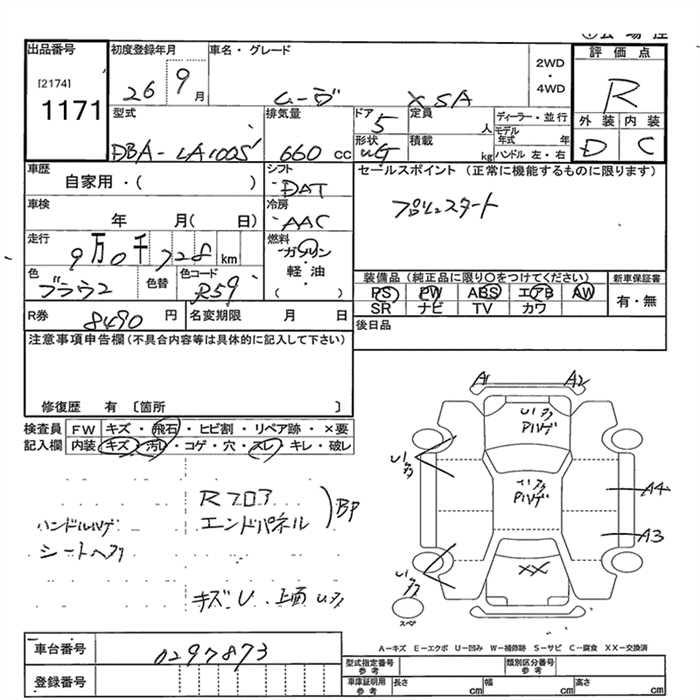 出品番号
[2174]
1171
初度登録年月
26 9月
車名・グレード
ムーヴ XSA
2WD
・
4WD
評価点
R
外装 内装
D C
型式
DBA-LA100S
排気量
660 cc
ドア 5
形状
定員 人
積載 kg
ディーラー・並行
モデル年式 年
ハンドル 左・右
車歴
自家用・( )
シフト
DAT
セールスポイント (正常に機能するものに限ります)
車検
年 月( 日)
冷房
AAC
走行
9万0千728km
燃料
ガソリン
・
軽・油
( )
色
ブラウン
色替
色コード
R59
装備品 (純正品に限り〇をつけてください)
PS PW ABS エアB AW
SR ナビ TV カワ
新車保証書
有・無
R券 8490 円
名変期限 月 日
後日品
注意事項申告欄(不具合内容等は具体的に記入して下さい)
修復歴 有 〔箇所 〕
検査員記入欄
FW キズ・飛石・ヒビ割・リペア跡・×要
内装 キズ・汚レ・コゲ・穴・スレ・キレ・破レ
Rフロア
エンドパネル
BP
ハンドルハゲ
シートヘタリ
キズ・U 上面
A1 A2
A4
A3
XX
スペア
A-キズ E-エクボ U-凹み W-補修跡 S-サビ C-腐食 XX-交換済
車台番号
0297873
登録番号
型式指定番号 参考
類別区分番号 参考
車庫証明用 参考
長さ cm
幅 cm
高さ cm